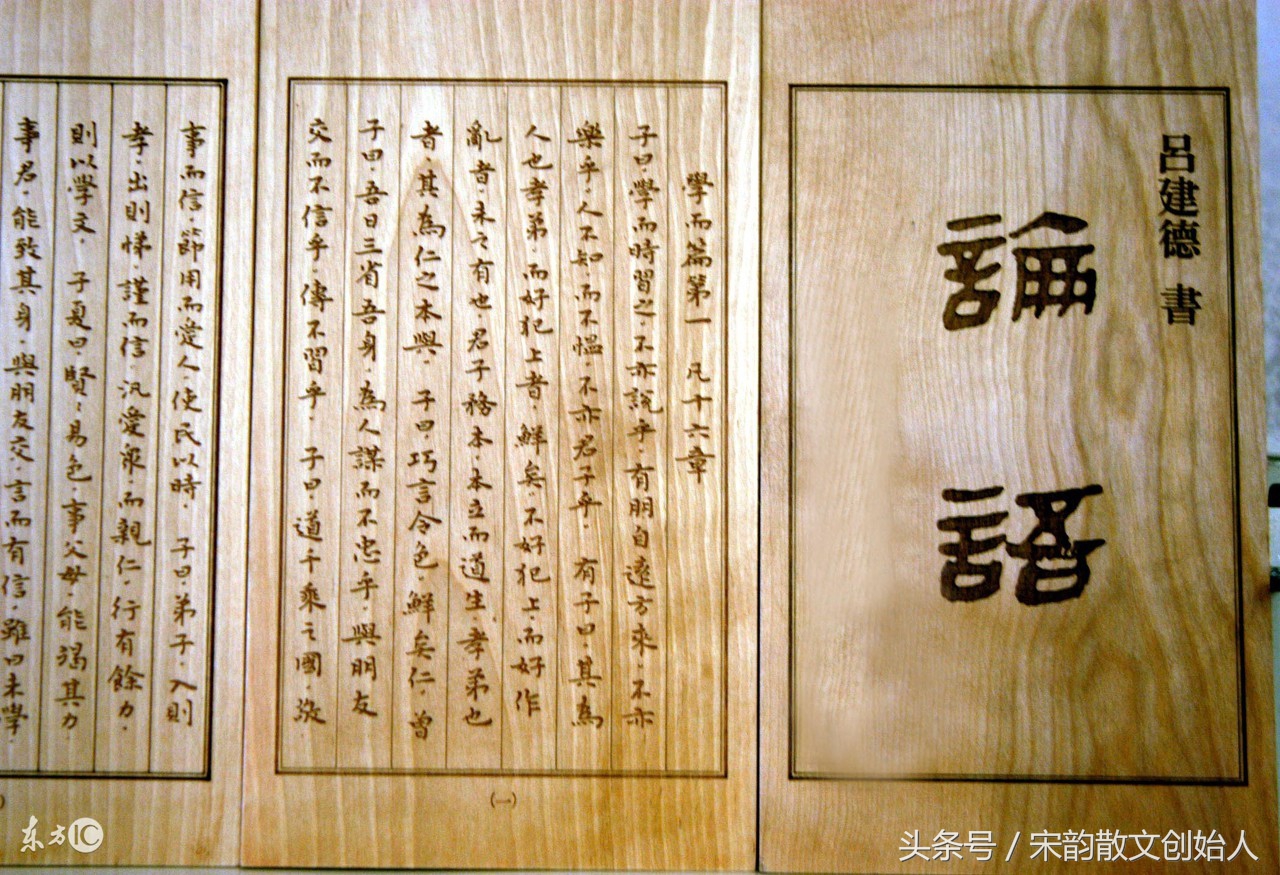 呂建德 書
論語
學而篇第一 凡十六章
子曰.學而時習之.不亦說乎.有朋自遠方來.不亦
樂乎.人不知.而不慍.不亦君子乎. 有子曰.其為
人也孝弟.而好犯上者.鮮矣.不好犯上.而好作
亂者.未之有也.君子務本.本立而道生.孝弟也
者.其為仁之本與. 子曰.巧言令色.鮮矣仁.曾
子曰.吾日三省吾身.為人謀而不忠乎.與朋友
交而不信乎.傳不習乎. 子曰.道千乘之國.敬
(一)
事而信.節用而愛人.使民以時. 子曰.弟子.入則
孝.出則悌.謹而信.汎愛眾.而親仁.行有餘力.
則以學文. 子夏曰.賢〻易色.事父母.能竭其力
事君.能致其身.與朋友交.言而有信.雖曰未學.
东方IC
头条号 / 宋韵散文创始人